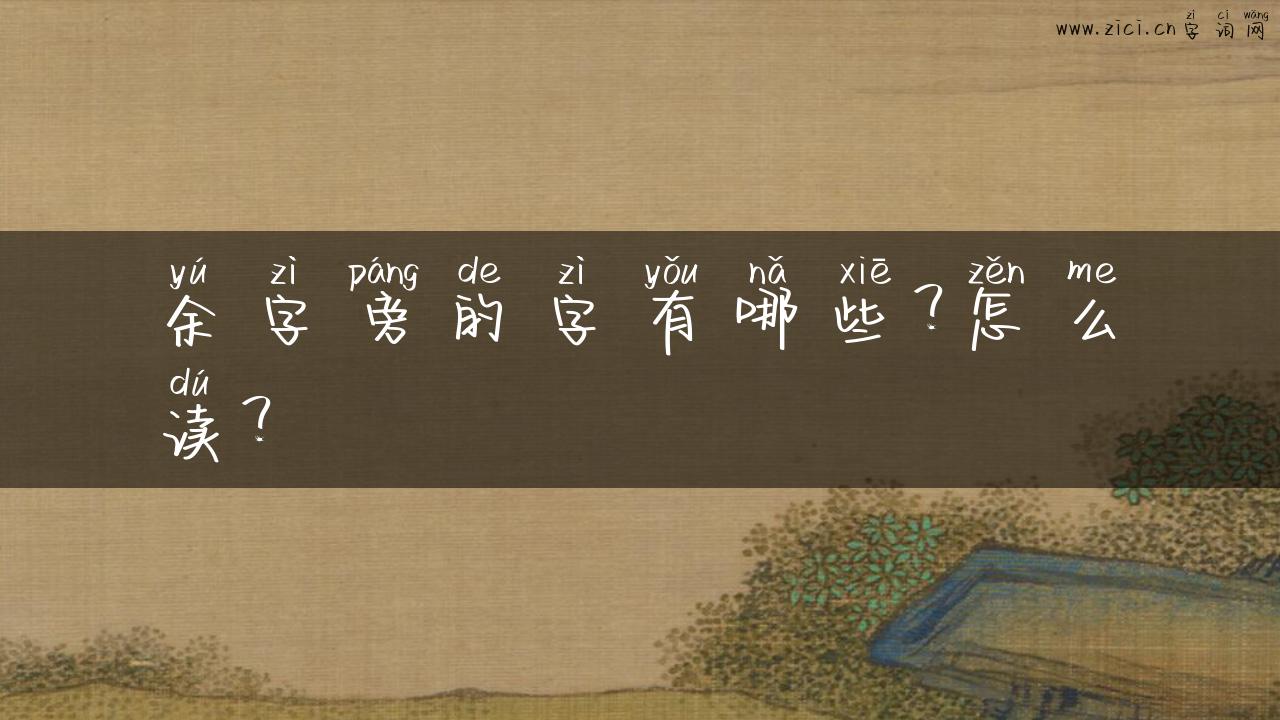 zì cí wǎng
www.zici.cn 字 词 网
yú zì páng de zì yǒu nǎ xiē zěn me
余 字 旁 的 字 有 哪 些 ? 怎 么
dú
读 ?